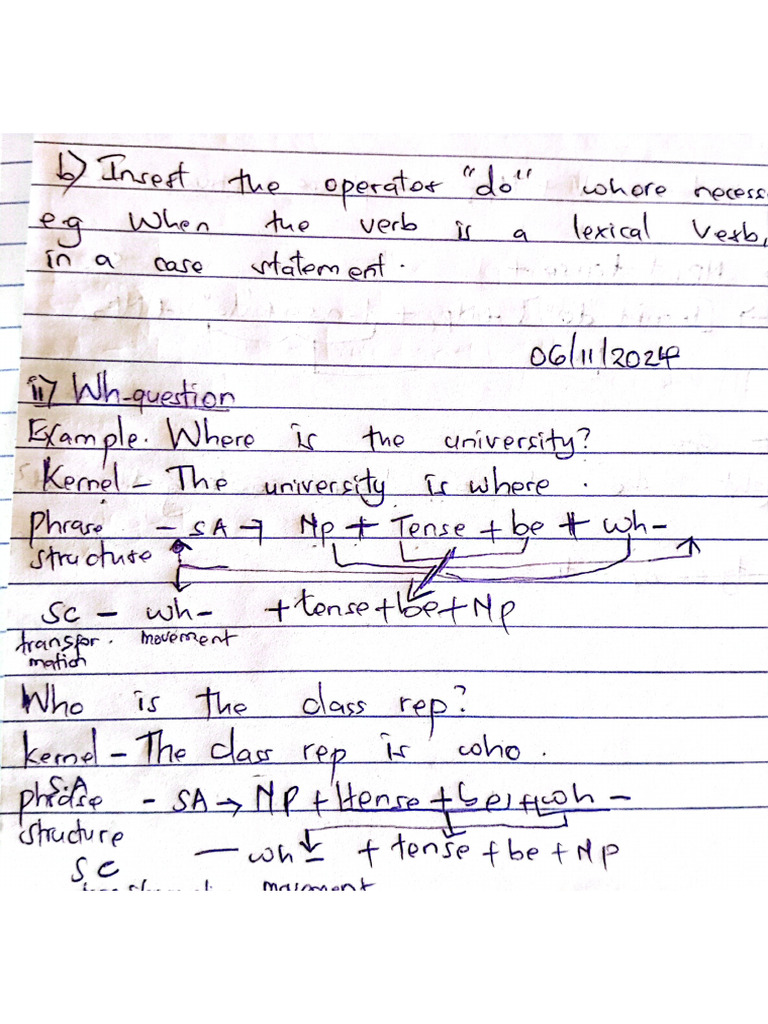 b) Insert the operator "do" where necess
e.g When the verb is a lexical verb,
in a case statement.
06/11/2024
ii) Wh-question
Example. Where is the university?
Kernel - The university is where.
Phrase - SA → Np + Tense + be + wh-
structure
SC - wh- + tense + be + Np
transfor. movement
mation
Who is the class rep?
kernel - The class rep is who.
S.A
phrase - SA → NP + (tense + be) + wh -
structure
- wh - + tense + be + Np
SC
movement